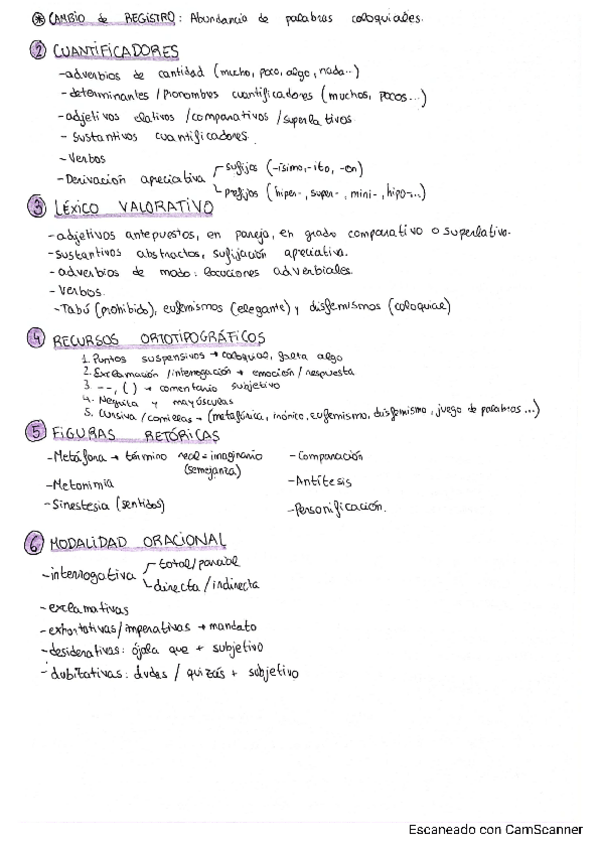 ⊛ CAMBIO de REGISTRO: Abundancia de palabras coloquiales.
2 CUANTIFICADORES
-adverbios de cantidad (mucho, poco, algo, nada...)
-determinantes / pronombres cuantificadores (muchos, pocos...)
-adjetivos elativos /comparativos /superlativos
- sustantivos cuantificadores.
-Verbos
-Derivación apreciativa sufijos (-ísimo, -ito, -on)
prefijos (hiper-, super-, mini-, hipo-...)
3 LÉXICO VALORATIVO
-adjetivos antepuestos, en pareja, en grado comparativo o superlativo.
-sustantivos abstractos, sufijación apreciativa.
-adverbios de modo: locuciones adverbiales.
-Verbos.
-Tabú (prohibido), eufemismos (elegante) y disfemismos (coloquial)
4 RECURSOS ORTOTIPOGRÁFICOS
1. Puntos suspensivos → coloquial, falta algo
2. Exclamación /interrogación → emoción/ respuesta
3 --, ( ) → comentario subjetivo
4. Negrita y mayúsculas
5. Cursiva /comillas → (metafórica, irónico, eufemismo, disfemismo, juego de palabras...)
5 FIGURAS RETÓRICAS
-Metáfora → término real = imaginario (semejanza)
-Metonimia
-Sinestesia (sentidos)
-Comparación
-Antítesis
-Personificación.
6 MODALIDAD ORACIONAL
-interrogativa total/parcial
directa / indirecta
-exclamativas
-exhortativas/imperativas → mandato
-desiderativas: ójala que + subjetivo
-dubitativas: dudas / quizás + subjetivo
Escaneado con CamScanner